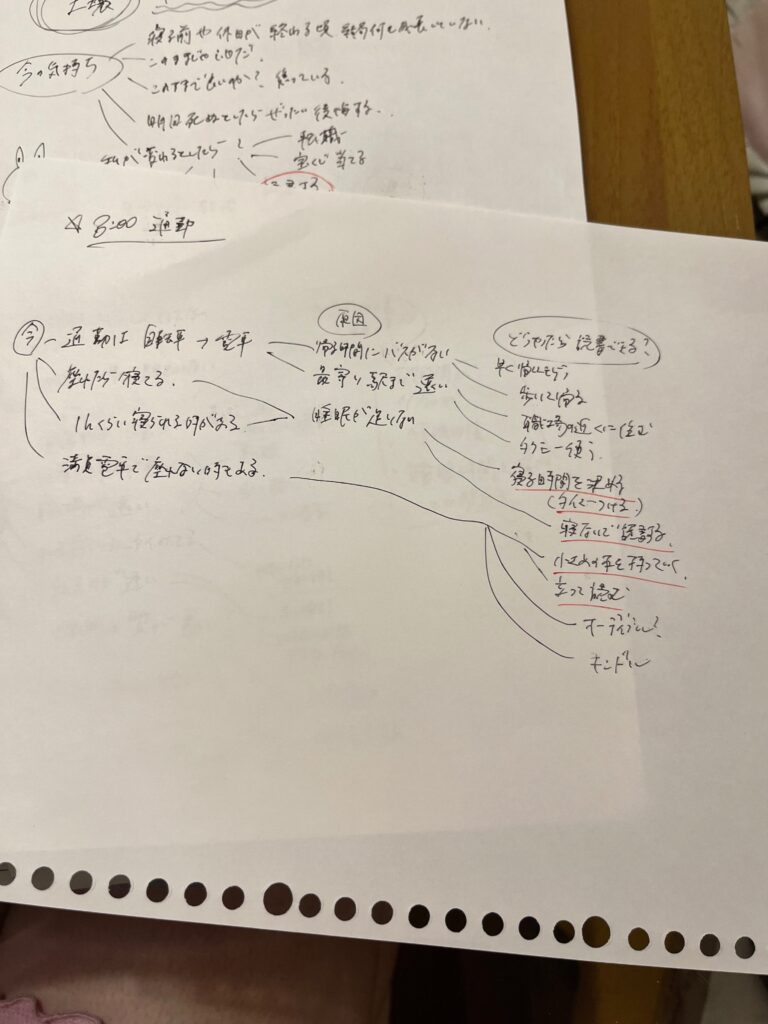 今の気持ち
寝る前や休日が終わる頃 結局何も成長していない
このままじゃだめだ。
このままで良いのか? 焦っている
明日死ぬとしたらぜったい後悔する。
私が変わるとしたら?
転職
宝くじ当てる
☆ 8:00 通勤
今
通勤は 自転車 → 電車
座れたら寝てる。
1hくらい寝られる時がある
満員電車で座れない時もある。
原因
時間にバスがない
最寄り駅まで遠い
睡眠が足りない
どうやったら読書できる?
歩いて帰る
職場の近くに住む
タクシー使う
寝る時間を決める
寝ないで読書する
小さめの本を持っていく
立って読む
オーディブル?
キンドル